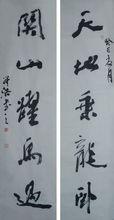 天地乘龍卧
關山躍馬過